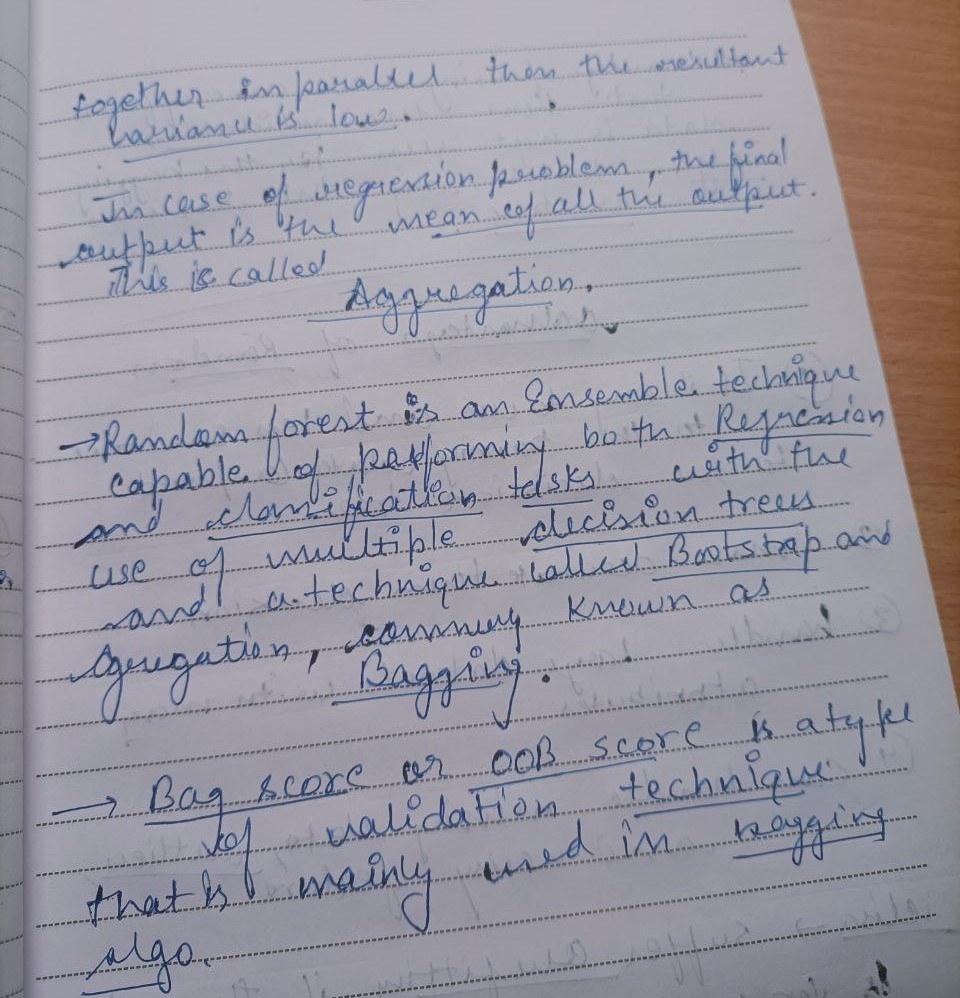 together in parallel then the resultant
variance is low.
In case of regression problem, the final
output is the mean of all the output.
This is called
Aggregation.
→Random forest is an Ensemble technique
capable of performing both Regression
and classification tasks with the
use of multiple decision trees
and a technique called Bootstrap and
Agregation, commnly known as
Bagging.
→ Bag score or OOB score is a type
of validation technique
that is mainly used in bagging
algo.